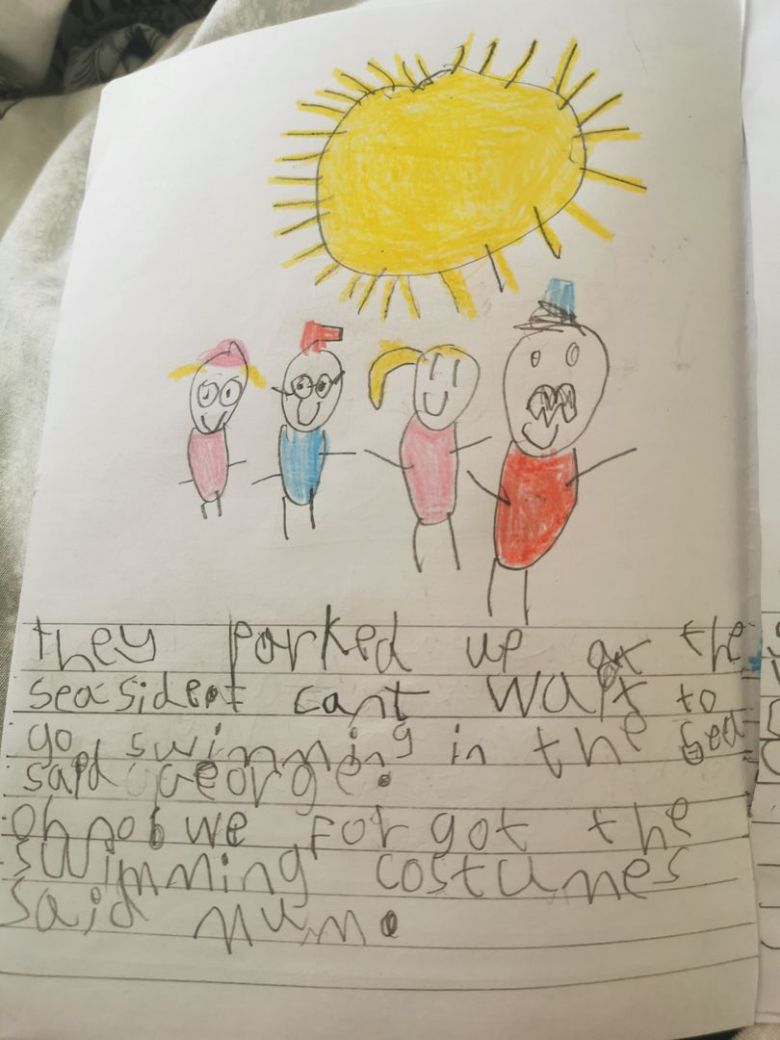 they parked up at the
seaside. I cant wait to
go swimming in the sea
said George.
oh no! we forgot the
swimming costumes
said mum.